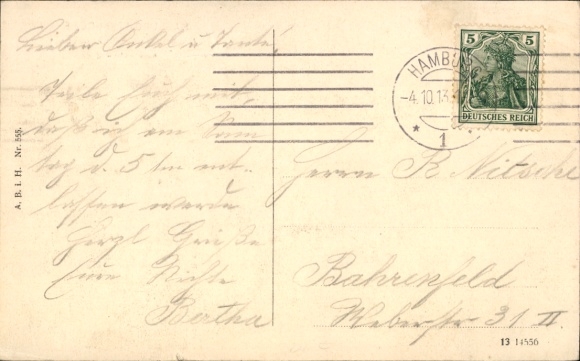 Lieber Onkel u Tante!
Teile Euch mit,
daß ich am Sonn
tag d. 5 ten ent-
lassen werde
Herzl Grüße
Eure Nichte
Bertha
A. B. i. H. Nr. 555.
HAMBURG
-4.10.13.
* 1
5 5
DEUTSCHES REICH
Herrn R. Nitsche
Bahrenfeld
Weberstr 31 II
13 14556